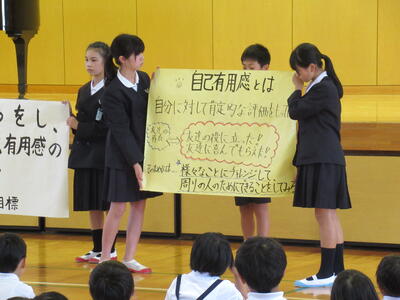 自己有用感とは
自分に対して肯定的な評価をして
友達の役に立った!
友達に喜んでもらえた!
様々なことにチャレンジして、
周りの人のためにできることをしてみる
つをし、
有用感の
目標